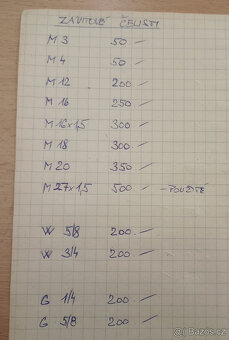 ZÁVITOVÉ ČELISTI
M 3 50 —
M 4 50 —
M 12 200 —
M 16 250 —
M 16x1,5 300 —
M 18 300 —
M 20 350 —
M 27x1,5 500 — - POUŽITÉ
W 5/8 200 —
W 3/4 200 —
G 1/4 200 —
G 5/8 200 —
sbazos.cz